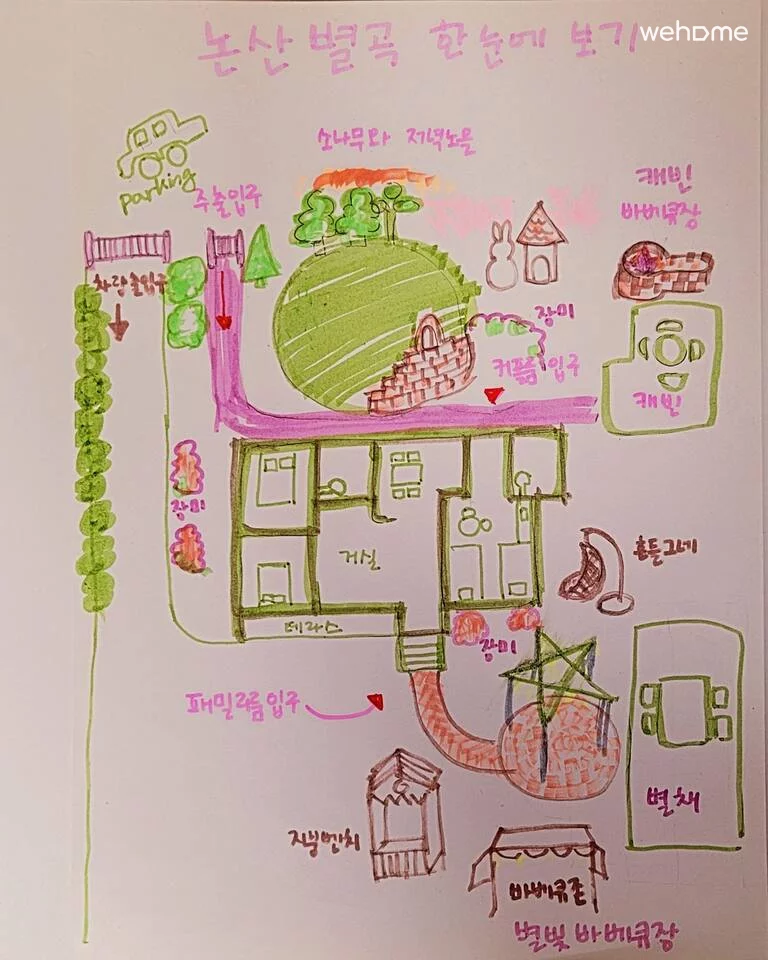 논산 별곡 한눈에 보기
wehome
소나무와 저녁노을
parking
주출입구
캐빈
바베큐장
차량출입구
장미
커플룸 입구
캐빈
장미
거실
흔들그네
테라스
장미
패밀리룸입구
별채
지붕벤치
바베큐존
별빛 바베큐장